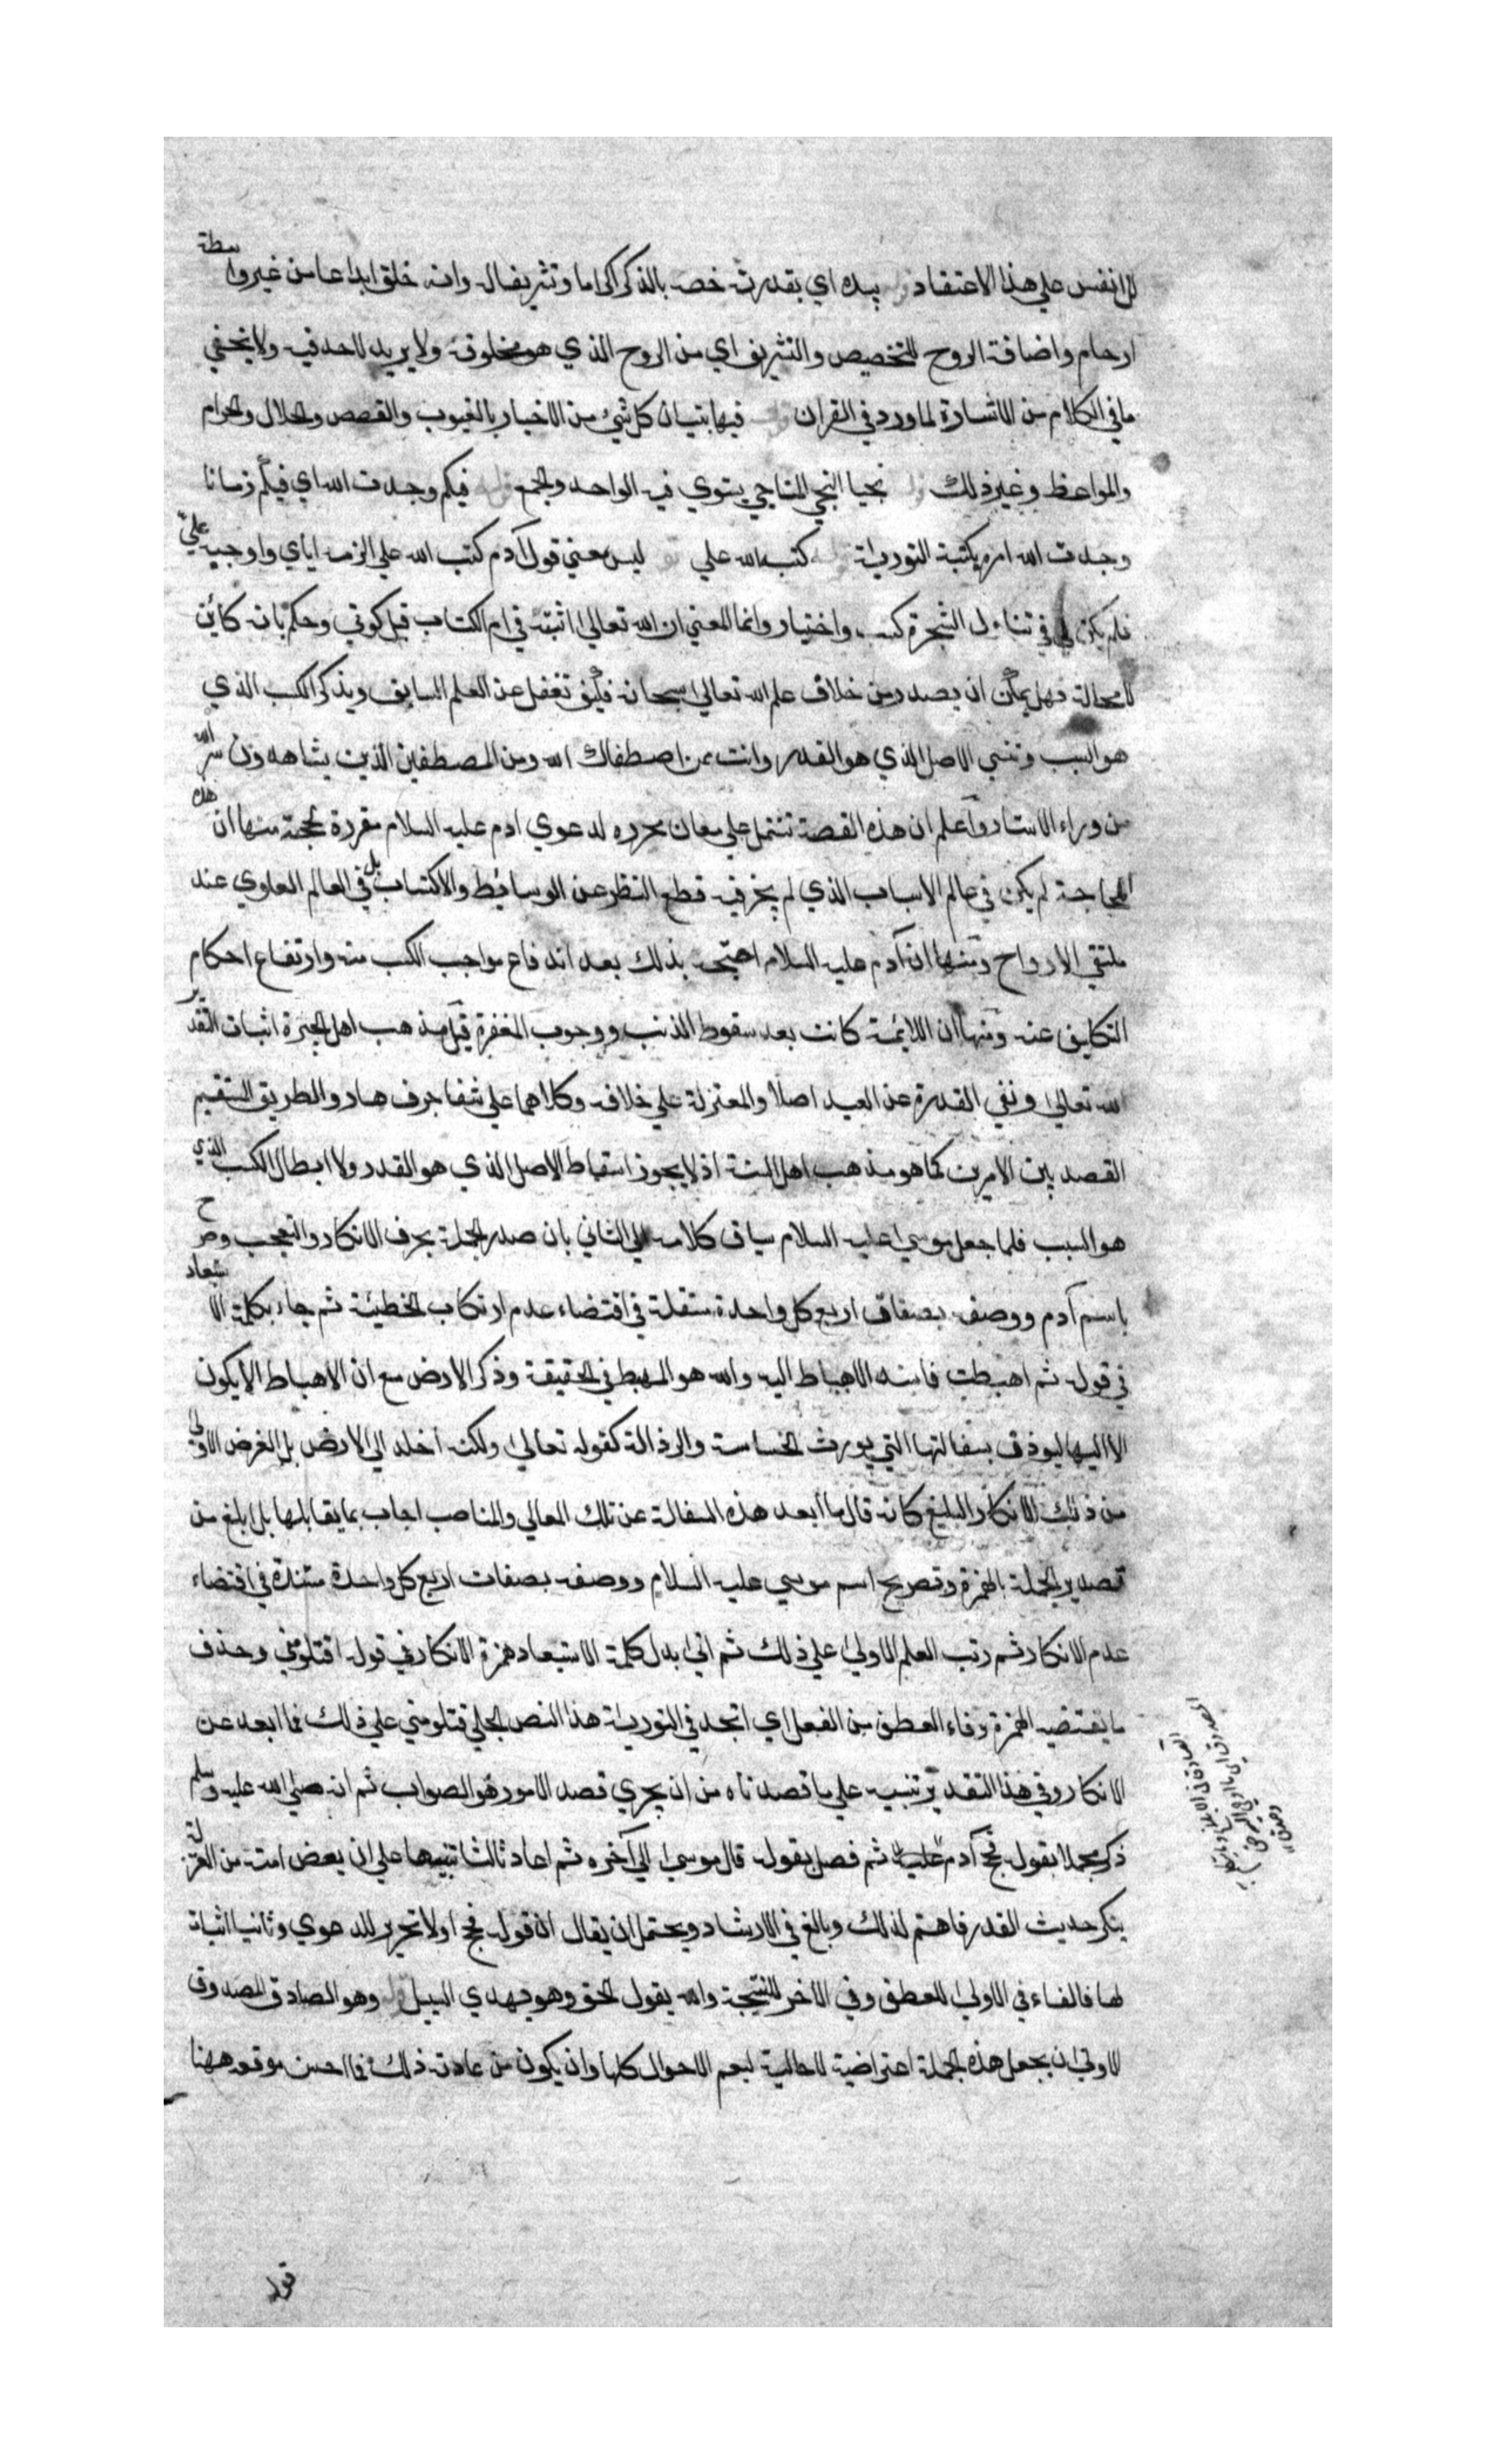 للانفس علي هذا الاعتقاد قوله بيده اي بقدرته خصه بالذكر اكراما وتشريفا له وانه خلق ابداعا من غير واسطة
ارحام واضافة الروح للتخصيص والتشريف اي من الروح الذي هو مخلوق ولا يد لاحد فيه ولا يخفي
ما في الكلام من الاشارة لما ورد في القران قوله فيها تبيان كل شيئ من الاخبار بالغيوب والقصص والحلال والحرام
والمواعظ وغير ذلك قوله نجيا النجي المناجي يستوي فيه الواحد والجمع قوله فبكم وجدت الله اي فبكم زمانا
وجدت الله امر بكتبة التورية قوله كتبه الله علي قو ليس معني قول آدم كتب الله علي الزمه اياي واوجبه علي
فلم يكن لي في تناول الشجرة كسب واختيار وانما المعني ان الله تعالي اثبته في ام الكتاب قبل كوني وحكم بانه كائن
لا محالة فهل يمكن ان يصدر مني خلاف علم الله تعالي سبحانه فكيف تغفل عن العلم السابق ويذكر الكسب الذي
هو السبب وتنسي الاصل الذي هو القدر وانت ممن اصطفاك الله ومن المصطفين الذين يشاهدون سر الله
من وراء الاستار واعلم ان هذه القصة تشتمل علي معان محرره لدعوي ادم عليه السلام مقررة لحجته منها ان هذه
المحاجة لم يكن في عالم الاسباب الذي لم يجز فيه قطع النظر عن الوسائط والاكتساب بل في العالم العلوي عند
ملتقي الارواح ومنها ان آدم عليه السلام احتج بذلك بعد اندفاع مواجب الكسب منه وارتفاع احكام
التكليف عنه ومنها ان اللائمة كانت بعد سقوط الذنب ووجوب المغفرة قيل مذهب اهل الجبرة اثبات التقدير
لله تعالي ونفي القدرة عن العبد اصلا والمعتزلة علي خلافه وكلاهما علي شفا جرف هار والطريق المستقيم
القصد بين الامرين كما هو مذهب اهل السنة اذ لا يجوز اسقاط الاصل الذي هو القدر ولا ابطال الكسب الذي
هو السبب فلما جعل موسي عليه السلام سياق كلامه الي الثاني بان صدر الجملة بحرف الانكار والتعجب وصرح
باسم آدم ووصفه بصفات اربع كل واحدة مستقلة في اقتضاء عدم ارتكاب الخطيئة ثم جاء بكلمة الاستبعاد
في قوله ثم اهبطت فاسند الاهباط اليه والله هو المهبط في الحقيقة وذكر الارض مع ان الاهباط لا يكون
الا اليها ليوذن بسفالتها التي يورث الخساسة والرذالة كقوله تعالي ولكنه اخلد الي الارض بل الغرض الاولي
من ذلك الانكار البليغ كانه قال ما ابعد هذه السفالة عن تلك المعالي والمناصب اجاب بما يقابلها بل ابلغ من
تصدير الجملة بالهمزة وتصريح اسم موسي عليه السلام ووصفه بصفات اربع كل واحدة مستبدة في اقتضاء
عدم الانكار ثم رتب العلم الاولي علي ذلك ثم اتي بدل كلمة الاستبعاد همزة الانكار في قوله افتلومني وحذف
ما يقتضيه الهمزة وفاء العطف من الفعل اي اتجد في التورية هذا النص الجلي فتلومني علي ذلك فما ابعد عن
الانكار وفي هذا التقدير تنبيه علي ما قصدناه من ان يجري قصد الامور هو الصواب ثم انه صلي الله عليه وسلم
ذكر مجملا بقوله فحج آدم عليه ثم فصل بقوله قال موسي الي آخره ثم اعاد ثالثا تنبيها علي ان بعض امته من المعتزلة
ينكر حديث القدر فاهتم لذلك وبالغ في الارشاد ويحتمل ان يقال ان قوله فحج اولا تحرير للدعوي وثانيا اثبات
لها فالفاء في الاولي للعطف وفي الاخر للنتيجة والله يقول الحق وهو يهدي السبيل قوله وهو الصادق المصدوق
الاولي ان يجعل هذه الجملة اعتراضية لا حالية ليعم الاحوال كلها وان يكون من عادته ذلك فما احسن موقعه ههنا
قوله